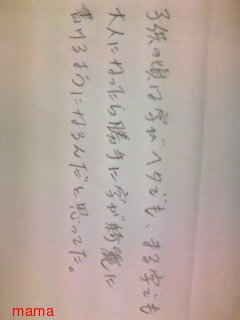 子供の頃は字がヘタでも、まる字でも
大人になったら勝手に字が綺麗に
書けるようになるんだと思ってた。
mama